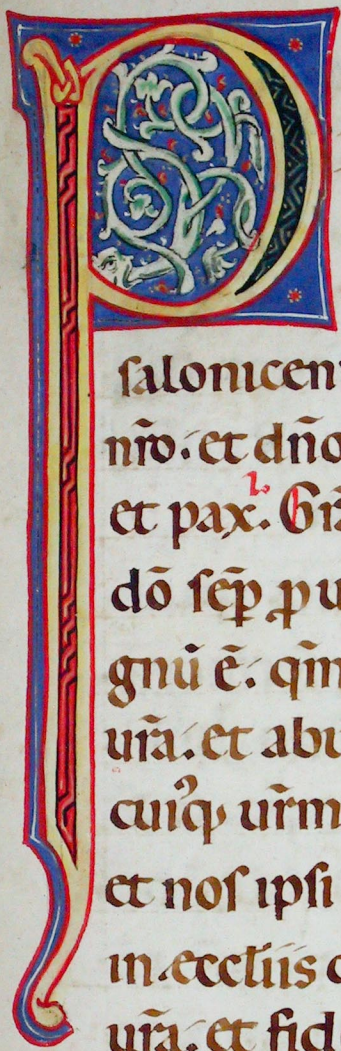 P
salonicen
nr̄o. et dn̄o
et pax. Gr̄a
dō sēp p u
gnū ē: qm̄
ur̄a. et abu
cuiq̨ ur̄m
et nos ipsi
in eccl̄iis
ur̄a. et fid